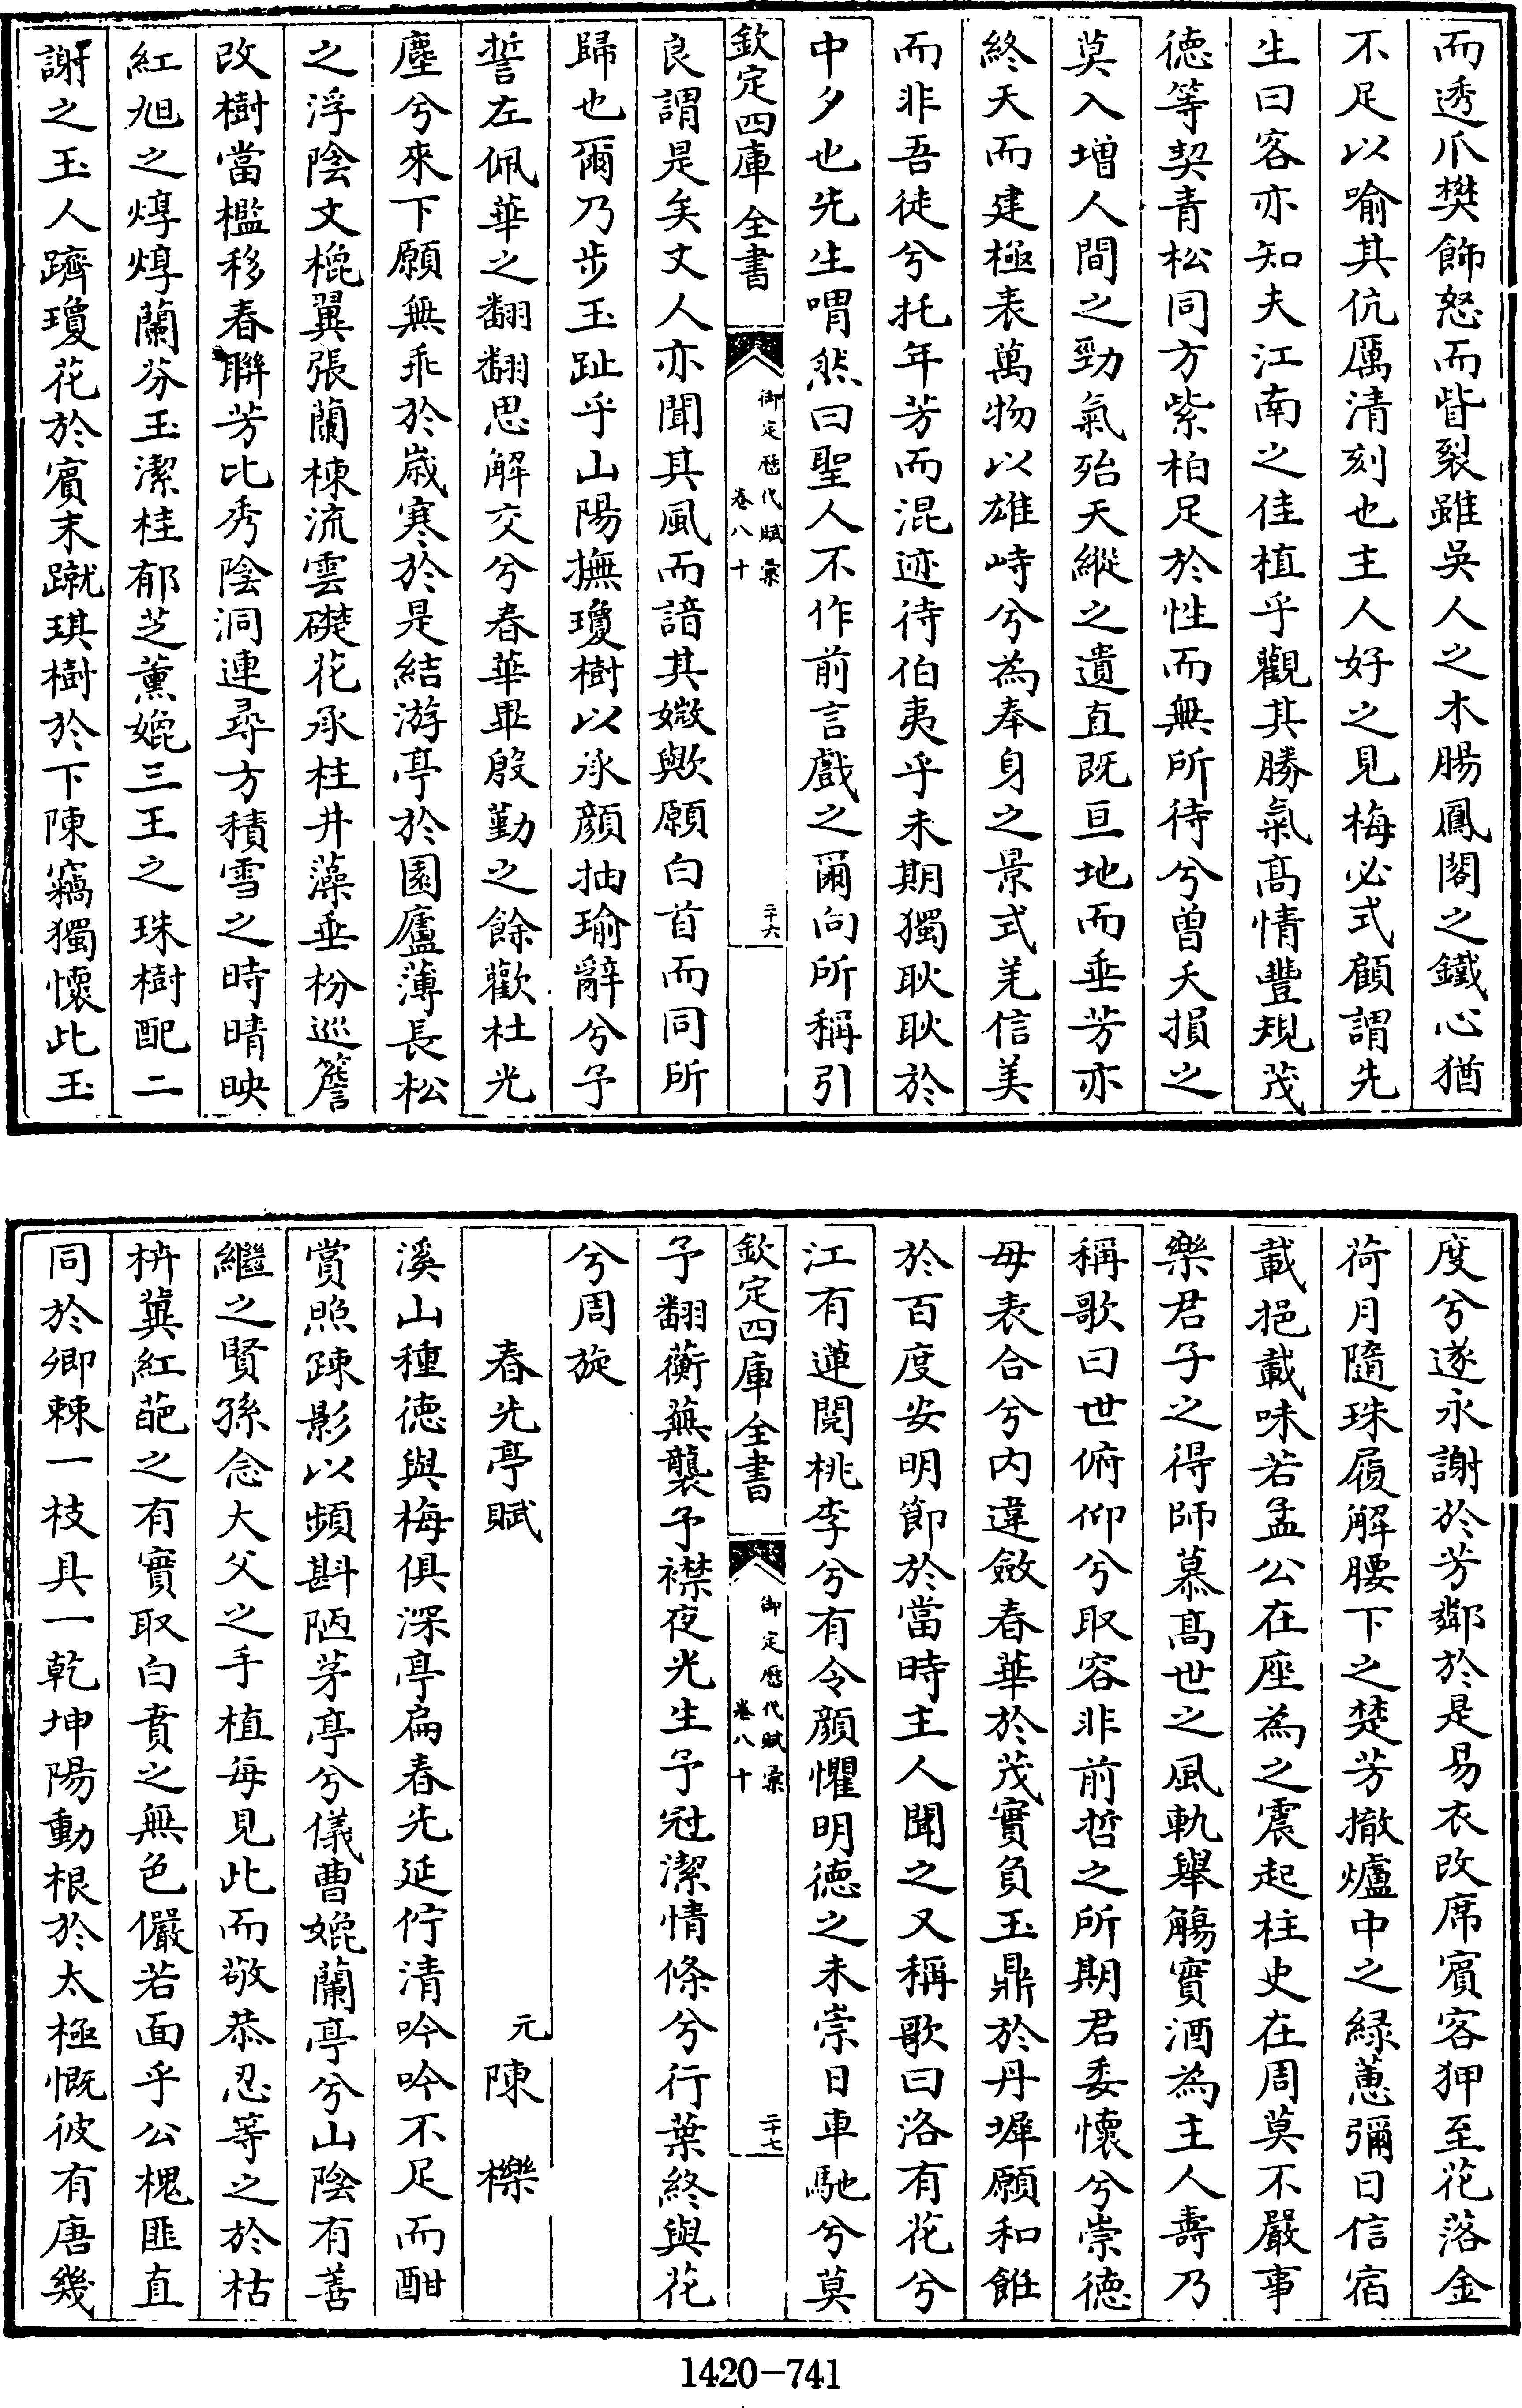 而透爪樊飾怒而眥裂雖吳人之木腸鳳閣之鐵心猶
不足以喻其伉厲清刻也主人好之見梅必式顧謂先
生曰客亦知夫江南之佳植乎觀其勝氣髙情豐規茂
徳等契青松同方紫柏足於性而無所待兮曾夭損之
莫入增人間之勁氣殆天縱之遺直既亘地而垂芳亦
終天而建極表萬物以雄峙兮為奉身之景式羌信美
而非吾徒兮托年芳而混迹待伯夷乎未期獨耿耿於
中夕也先生喟然曰聖人不作前言戲之爾向所稱引
欽定四庫全書
御定歴代賦彙
卷八十
二十六
良謂是矣丈人亦聞其風而諳其媺歟願白首而同所
歸也爾乃步玉趾乎山陽撫瓊樹以承顔抽瑜辭兮予
誓左佩華之翻翻思解交兮春華畢殷勤之餘歡杜光
塵兮來下願無乖於嵗寒於是結游亭於園廬薄長松
之浮陰文櫋翼張蘭棟流雲礎花承柱井藻垂枌巡簷
改樹當檻移春聯芳比秀陰洞連尋方積雪之時晴映
紅旭之焞焞蘭芬玉潔桂郁芝薰媲三王之珠樹配二
謝之玉人躋瓊花於賔末蹴琪樹於下陳竊獨懷此玉
度兮遂永謝於芳鄰於是易衣改席賔客狎至花落金
荷月隨珠履解腰下之楚芳撤爐中之緑蕙彌日信宿
載挹載味若孟公在座為之震起柱史在周莫不嚴事
樂君子之得師慕髙世之風軌舉觴實酒為主人壽乃
稱歌曰世俯仰兮取容非前哲之所期君委懷兮崇徳
毋表合兮内違斂春華於茂實負玉鼎於丹墀願和飪
於百度安明節於當時主人聞之又稱歌曰洛有花兮
江有蓮閲桃李兮有令顔懼明徳之未崇日車馳兮莫
欽定四庫全書
御定歴代賦彙
卷八十
二十七
予翻蘅蕪襲予襟夜光生予冠潔情條兮行葉終與花
兮周旋
春先亭賦
元陳櫟
溪山種徳與梅俱深亭扁春先延佇清吟吟不足而酣
賞照疎影以頻斟陋茅亭兮儀曹媲蘭亭兮山陰有善
繼之賢孫念大父之手植每見此而敬恭忍等之於枯
枿冀紅葩之有實取白賁之無色儼若面乎公槐匪直
同於卿棘一枝具一乾坤陽動根於太極慨彼有唐幾
1420-741